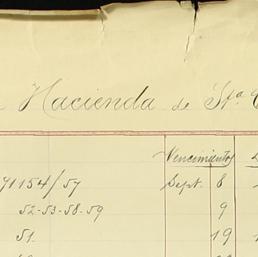 Hacienda de Sta.
Vencimientos
71154/57 Sept. 8
52-53-58-59 9
51. 19